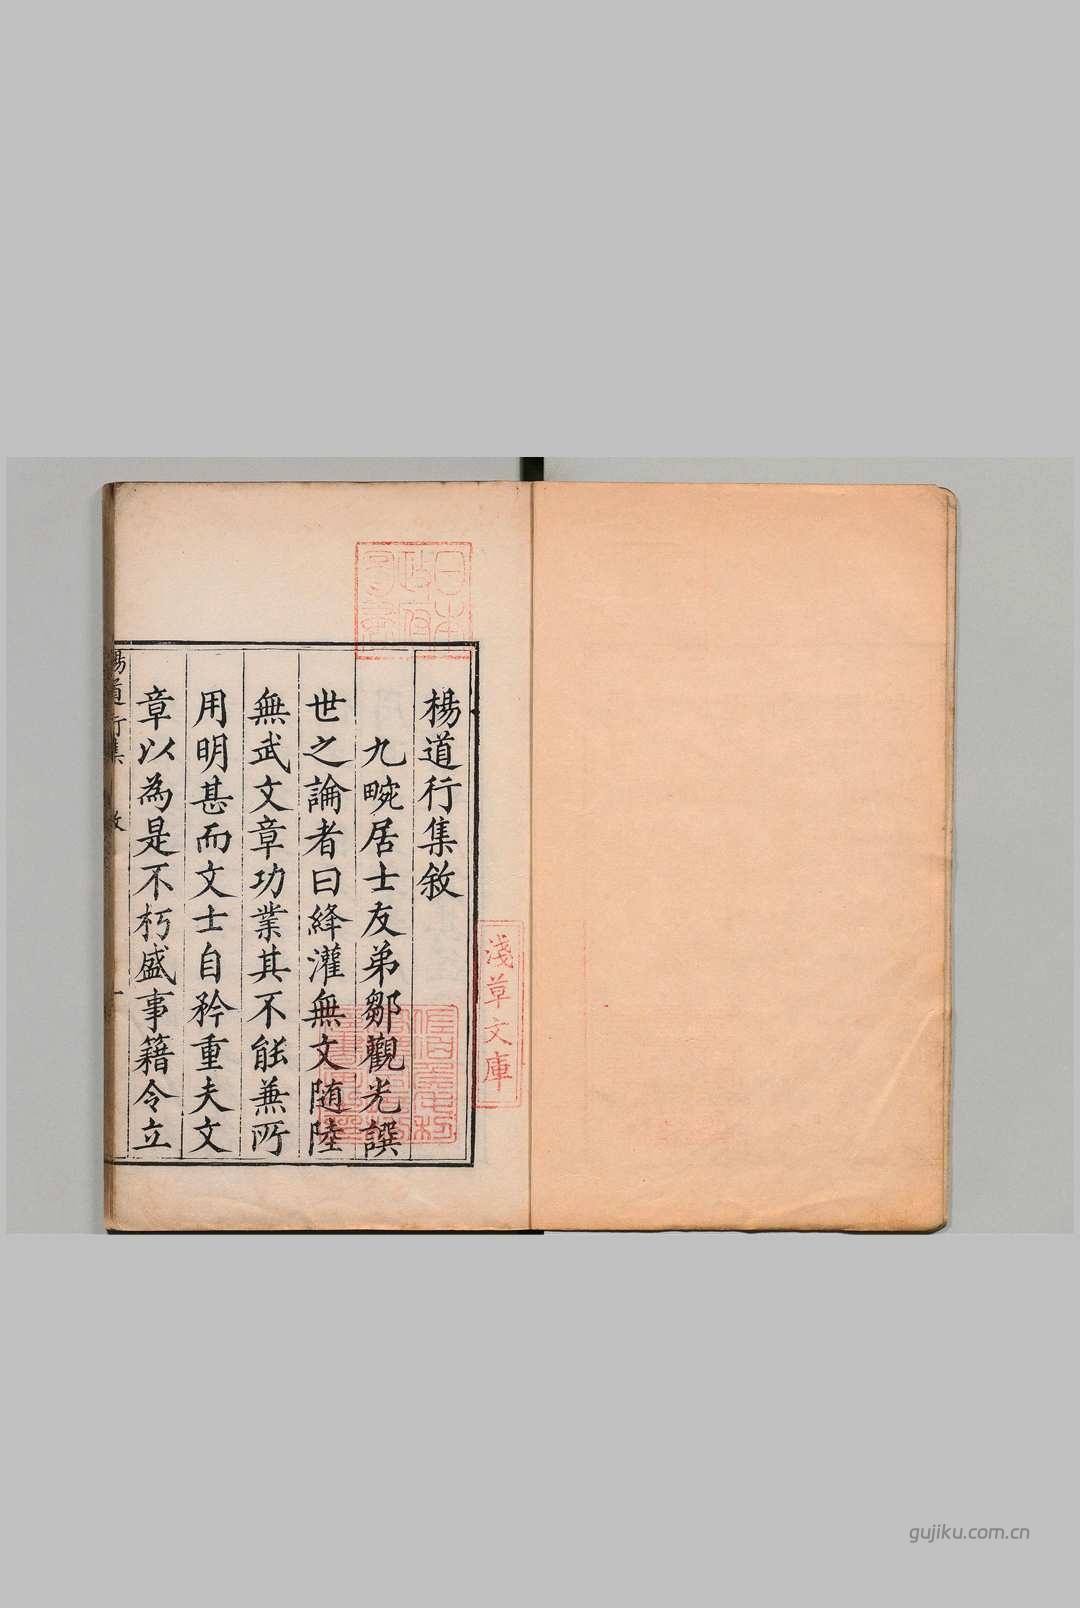 楊道行集敘
九畹居士友弟鄒觀光譔
世之論者曰絳灌無文随陸
無武文章功業其不能兼所
用明甚而文士自矜重夫文
章以為是不朽盛事籍令立
楊道行集 敘 一
日本政府圖書
淺草文庫
gujiku.com.cn